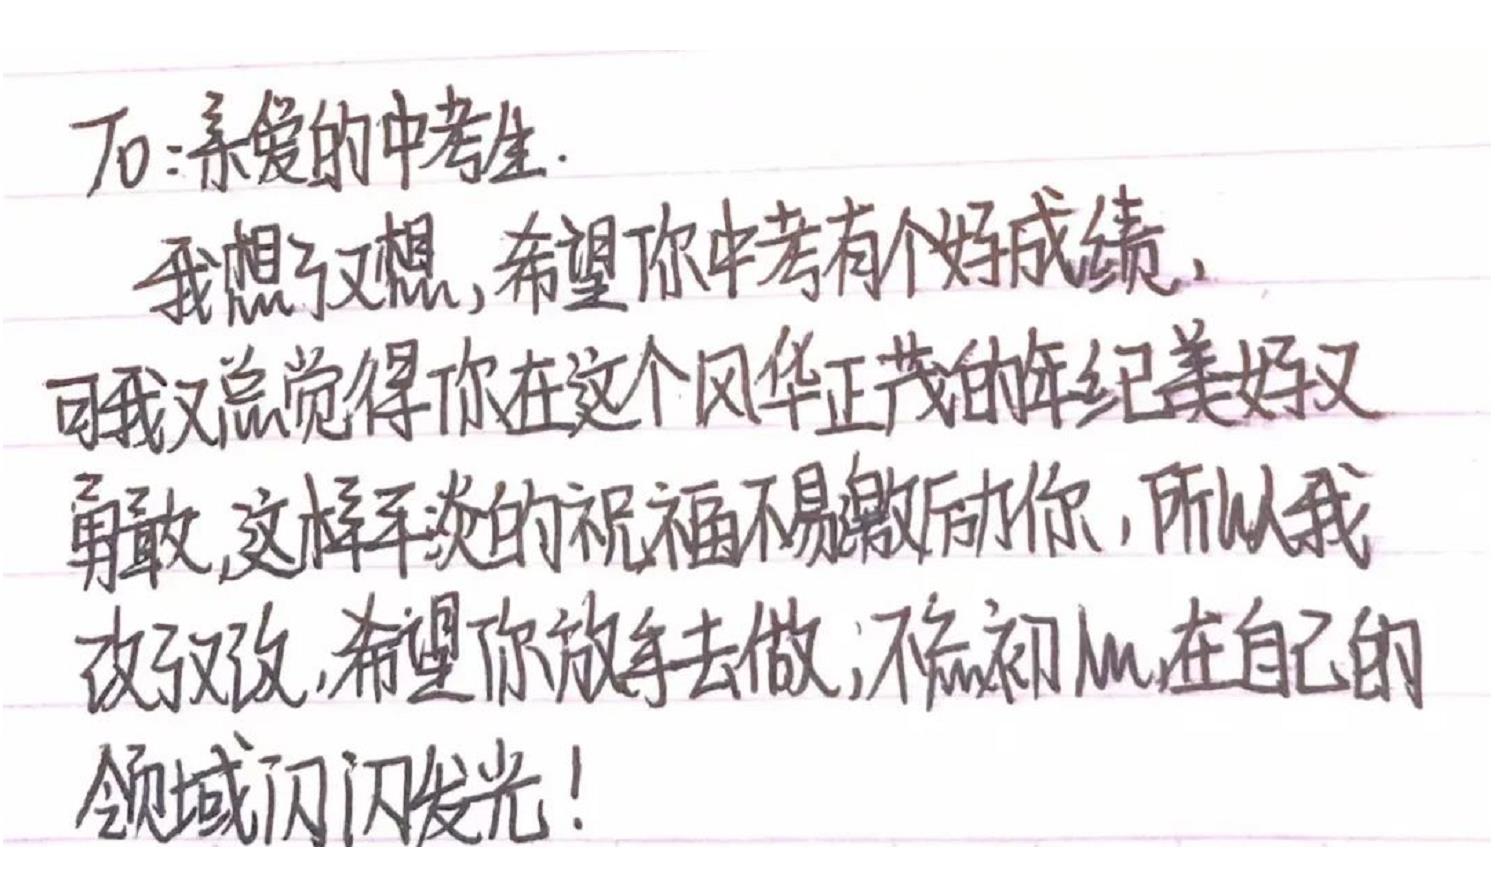 To:亲爱的中考生.
我想了又想,希望你中考有个好成绩,
可我又总觉得你在这个风华正茂的年纪美好又
勇敢,这样平淡的祝福不易激励你,所以我
改了又改,希望你放手去做,不忘初心,在自己的
领域闪闪发光!